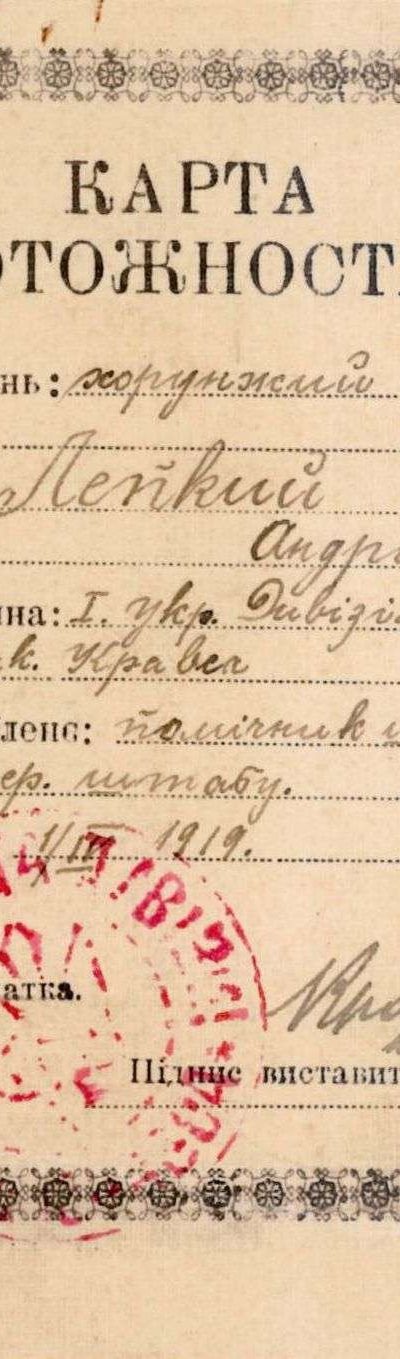 КАРТА
ОТОЖНОСТ
нь: хорунжий
Лепкий
Андрі
ина: I. укр. Дивізі
к. Кравса
лене: помічник
ер. штабу.
1/III 1919.
ДИВІЗІЇ
атка.
Кра
Підпис виставит